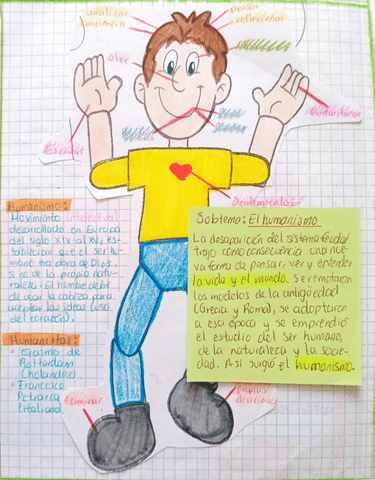 analizar
conciencia
pensar
reflexionar
oler
Escribir
Sentimientos
Humanismo:
Movimiento intelectual
desarrollado en Europa
del siglo XIV al XV, es-
tablecían que el ser hu-
mano era obra de Dios
si no de la propia natu-
raleza: El hombre debe
de usar la cabeza para
aceptar las ideas (uso
del corazón).
Humanistas:
Erasmo de
Rotterdam
(holandés)
Francesco
Petrarca
(italiano).
Subtema: El humanismo
La desaparición del sistema feudal
trajo como consecuencia una nue-
va forma de pensar, ver y entender
la vida y el mundo. Se remotaron
los modelos de la antigüedad
(Grecia y Roma), se adoptaron
a esa época y se emprendió
el estudio del ser humano,
de la naturaleza y la socie-
dad. Así surgió el humanismo.
Caminar
propias
decisiones